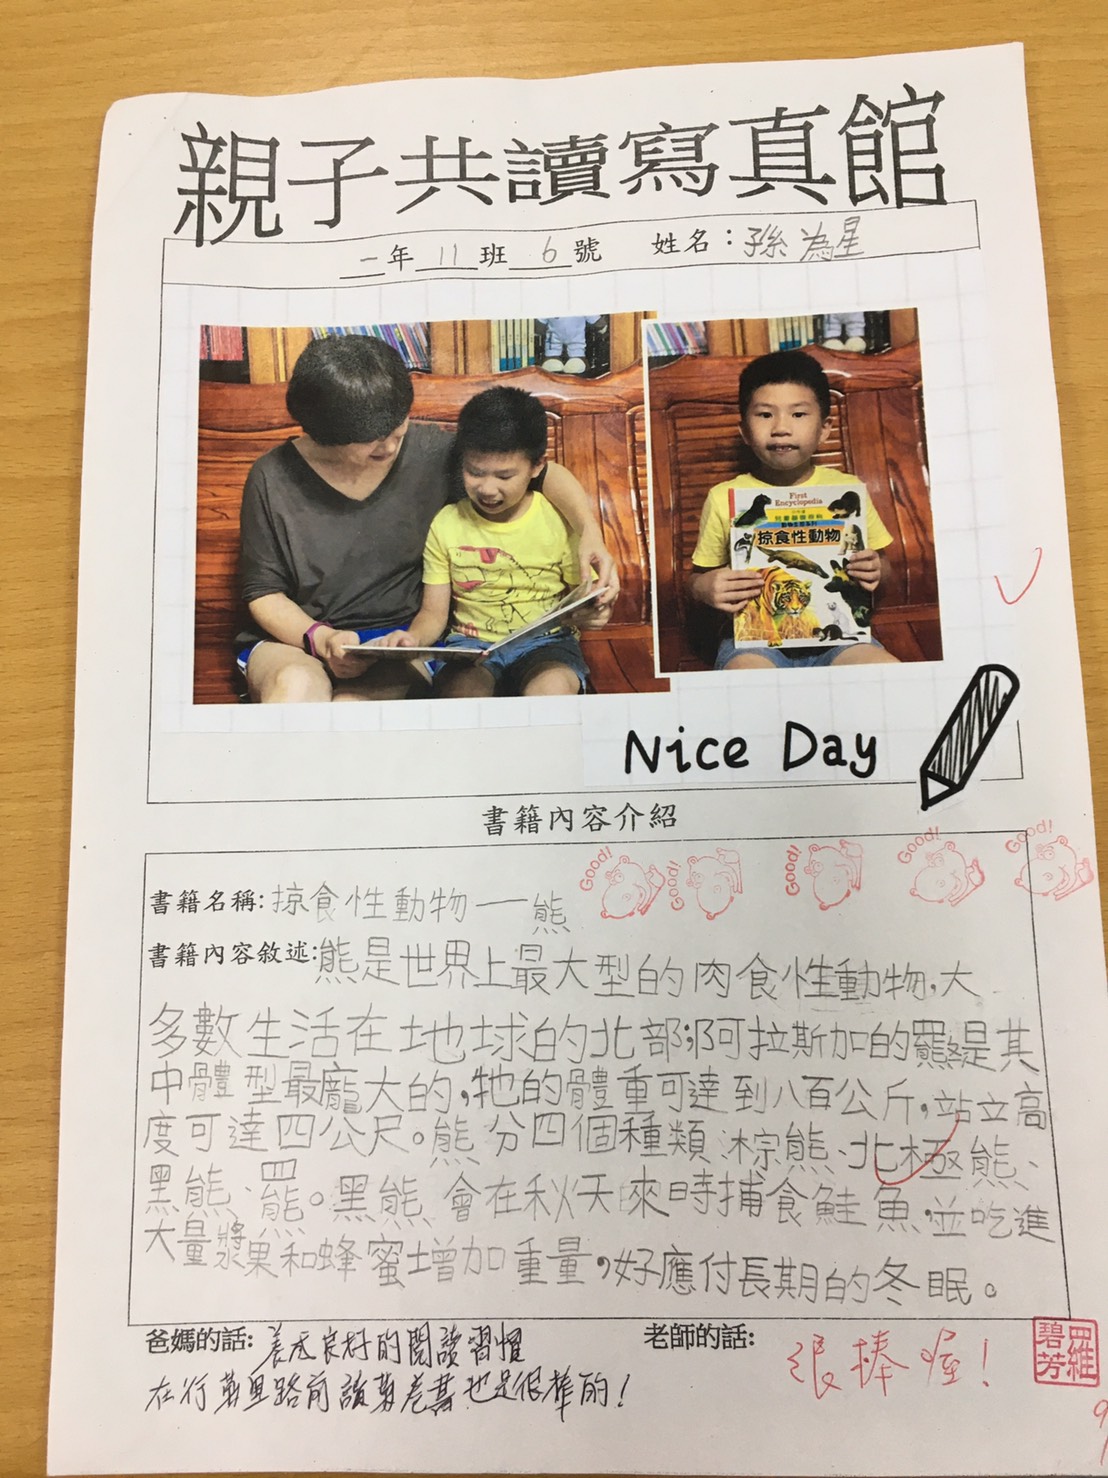 親子共讀寫真館
一年11班6號 姓名：孫為星
First
Encyclopedia
動物生態系列
掠食性動物
Nice Day
書籍內容介紹
Good! Good! Good! Good! Good!
書籍名稱:掠食性動物——熊
書籍內容敘述:熊是世界上最大型的肉食性動物，大
多數生活在地球的北部；阿拉斯加的羆是其
中體型最龐大的，牠的體重可達到八百公斤，站立高
度可達四公尺。熊分四個種類：棕熊、北極熊、
黑熊、羆。黑熊會在秋天來時捕食鮭魚，並吃進
大量漿果和蜂蜜增加重量，好應付長期的冬眠。
爸媽的話: 養成良好的閱讀習慣
在行萬里路前讀萬卷書也是很棒的！
老師的話: 很棒喔！
羅維
碧芳